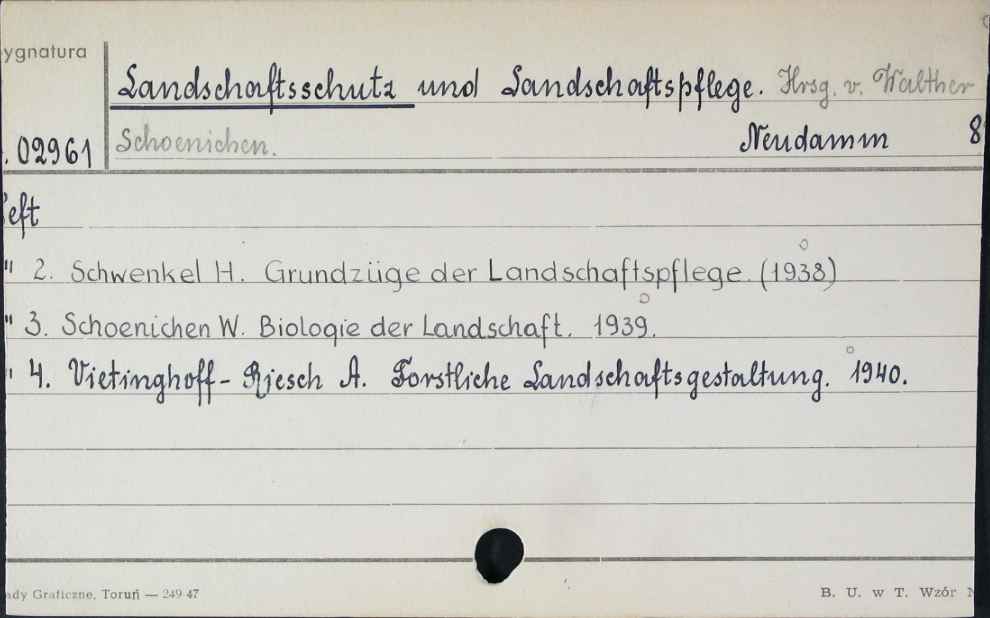 ygnatura
Landschaftsschutz und Landschaftspflege. Hrsg. v. Walther
. 02961 Schoenichen. Neudamm 8
eft
" 2. Schwenkel H. Grundzüge der Landschaftspflege. (1938)
" 3. Schoenichen W. Biologie der Landschaft. 1939.
" 4. Vietinghoff-Riesch A. Forstliche Landschaftsgestaltung. 1940.
ady Graficzne, Toruń — 249 47 B. U. w T. Wzór N